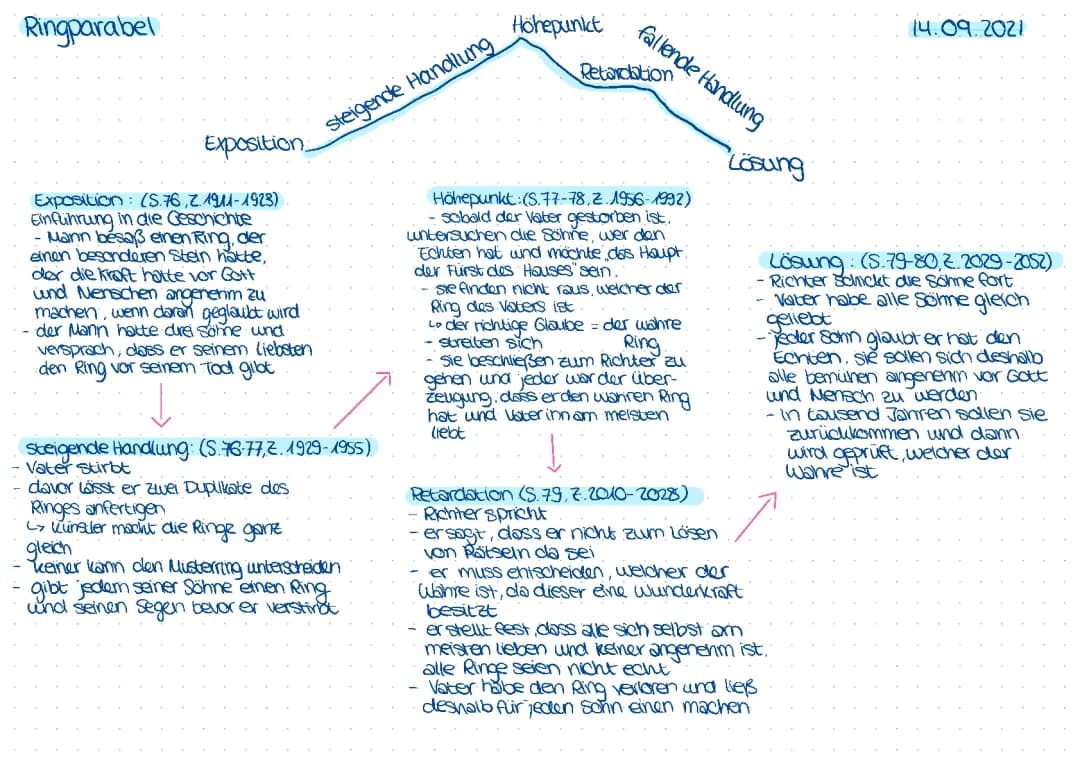 Ringparabel
14.09.2021
Höhepunkt
steigende Handlung
fallende Handlung
Retardation
Exposition
Lösung
Exposition: (S.76, Z.1911-1923)
Einführung in die Geschichte
- Mann besaß einen Ring, der
einen besonderen Stein hatte,
der die Kraft hatte vor Gott
und Menschen angenehm zu
machen, wenn daran geglaubt wird
- der Mann hatte drei Söhne und
versprach, dass er seinem Liebsten
den Ring vor seinem Tod gibt
steigende Handlung: (S.76-77, Z.1929-1955)
- Vater stirbt
- davor lässt er zwei Duplikate des
Ringes anfertigen
↳ Künstler macht die Ringe ganz
gleich
- keiner kann den Musterring unterscheiden
- gibt jedem seiner Söhne einen Ring
und seinen Segen bevor er verstirbt
Höhepunkt: (S.77-78, Z.1956-1992)
- sobald der Vater gestorben ist,
untersuchen die Söhne, wer den
Echten hat und möchte „das Haupt,
der Fürst des Hauses" sein.
- sie finden nicht raus, welcher der
Ring des Vaters ist
↳ der richtige Glaube = der wahre
Ring
- streiten sich
- sie beschießen zum Richter zu
gehen und jeder war der Über-
zeugung, dass er den wahren Ring
hat und Vater ihn am meisten
liebt
Retardation (S.79, Z.2010-2028)
- Richter spricht
- er sagt, dass er nicht zum Lösen
von Rätseln da sei
- er muss entscheiden, welcher der
Wahre ist, da dieser eine Wunderkraft
besitzt
- er stellt fest, dass alle sich selbst am
meisten lieben und keiner angenehm ist.
alle Ringe seien nicht echt
- Vater habe den Ring verloren und ließ
deshalb für jeden Sohn einen machen
Lösung: (S.79-80, Z.2029-2052)
- Richter schickt die Söhne fort
- Vater habe alle Söhne gleich
geliebt
- jeder Sohn glaubt er hat den
Echten, sie sollen sich deshalb
alle bemühen angenehm vor Gott
und Mensch zu werden
- in tausend Jahren sollen sie
zurückkommen und dann
wird geprüft, welcher der
Wahre ist